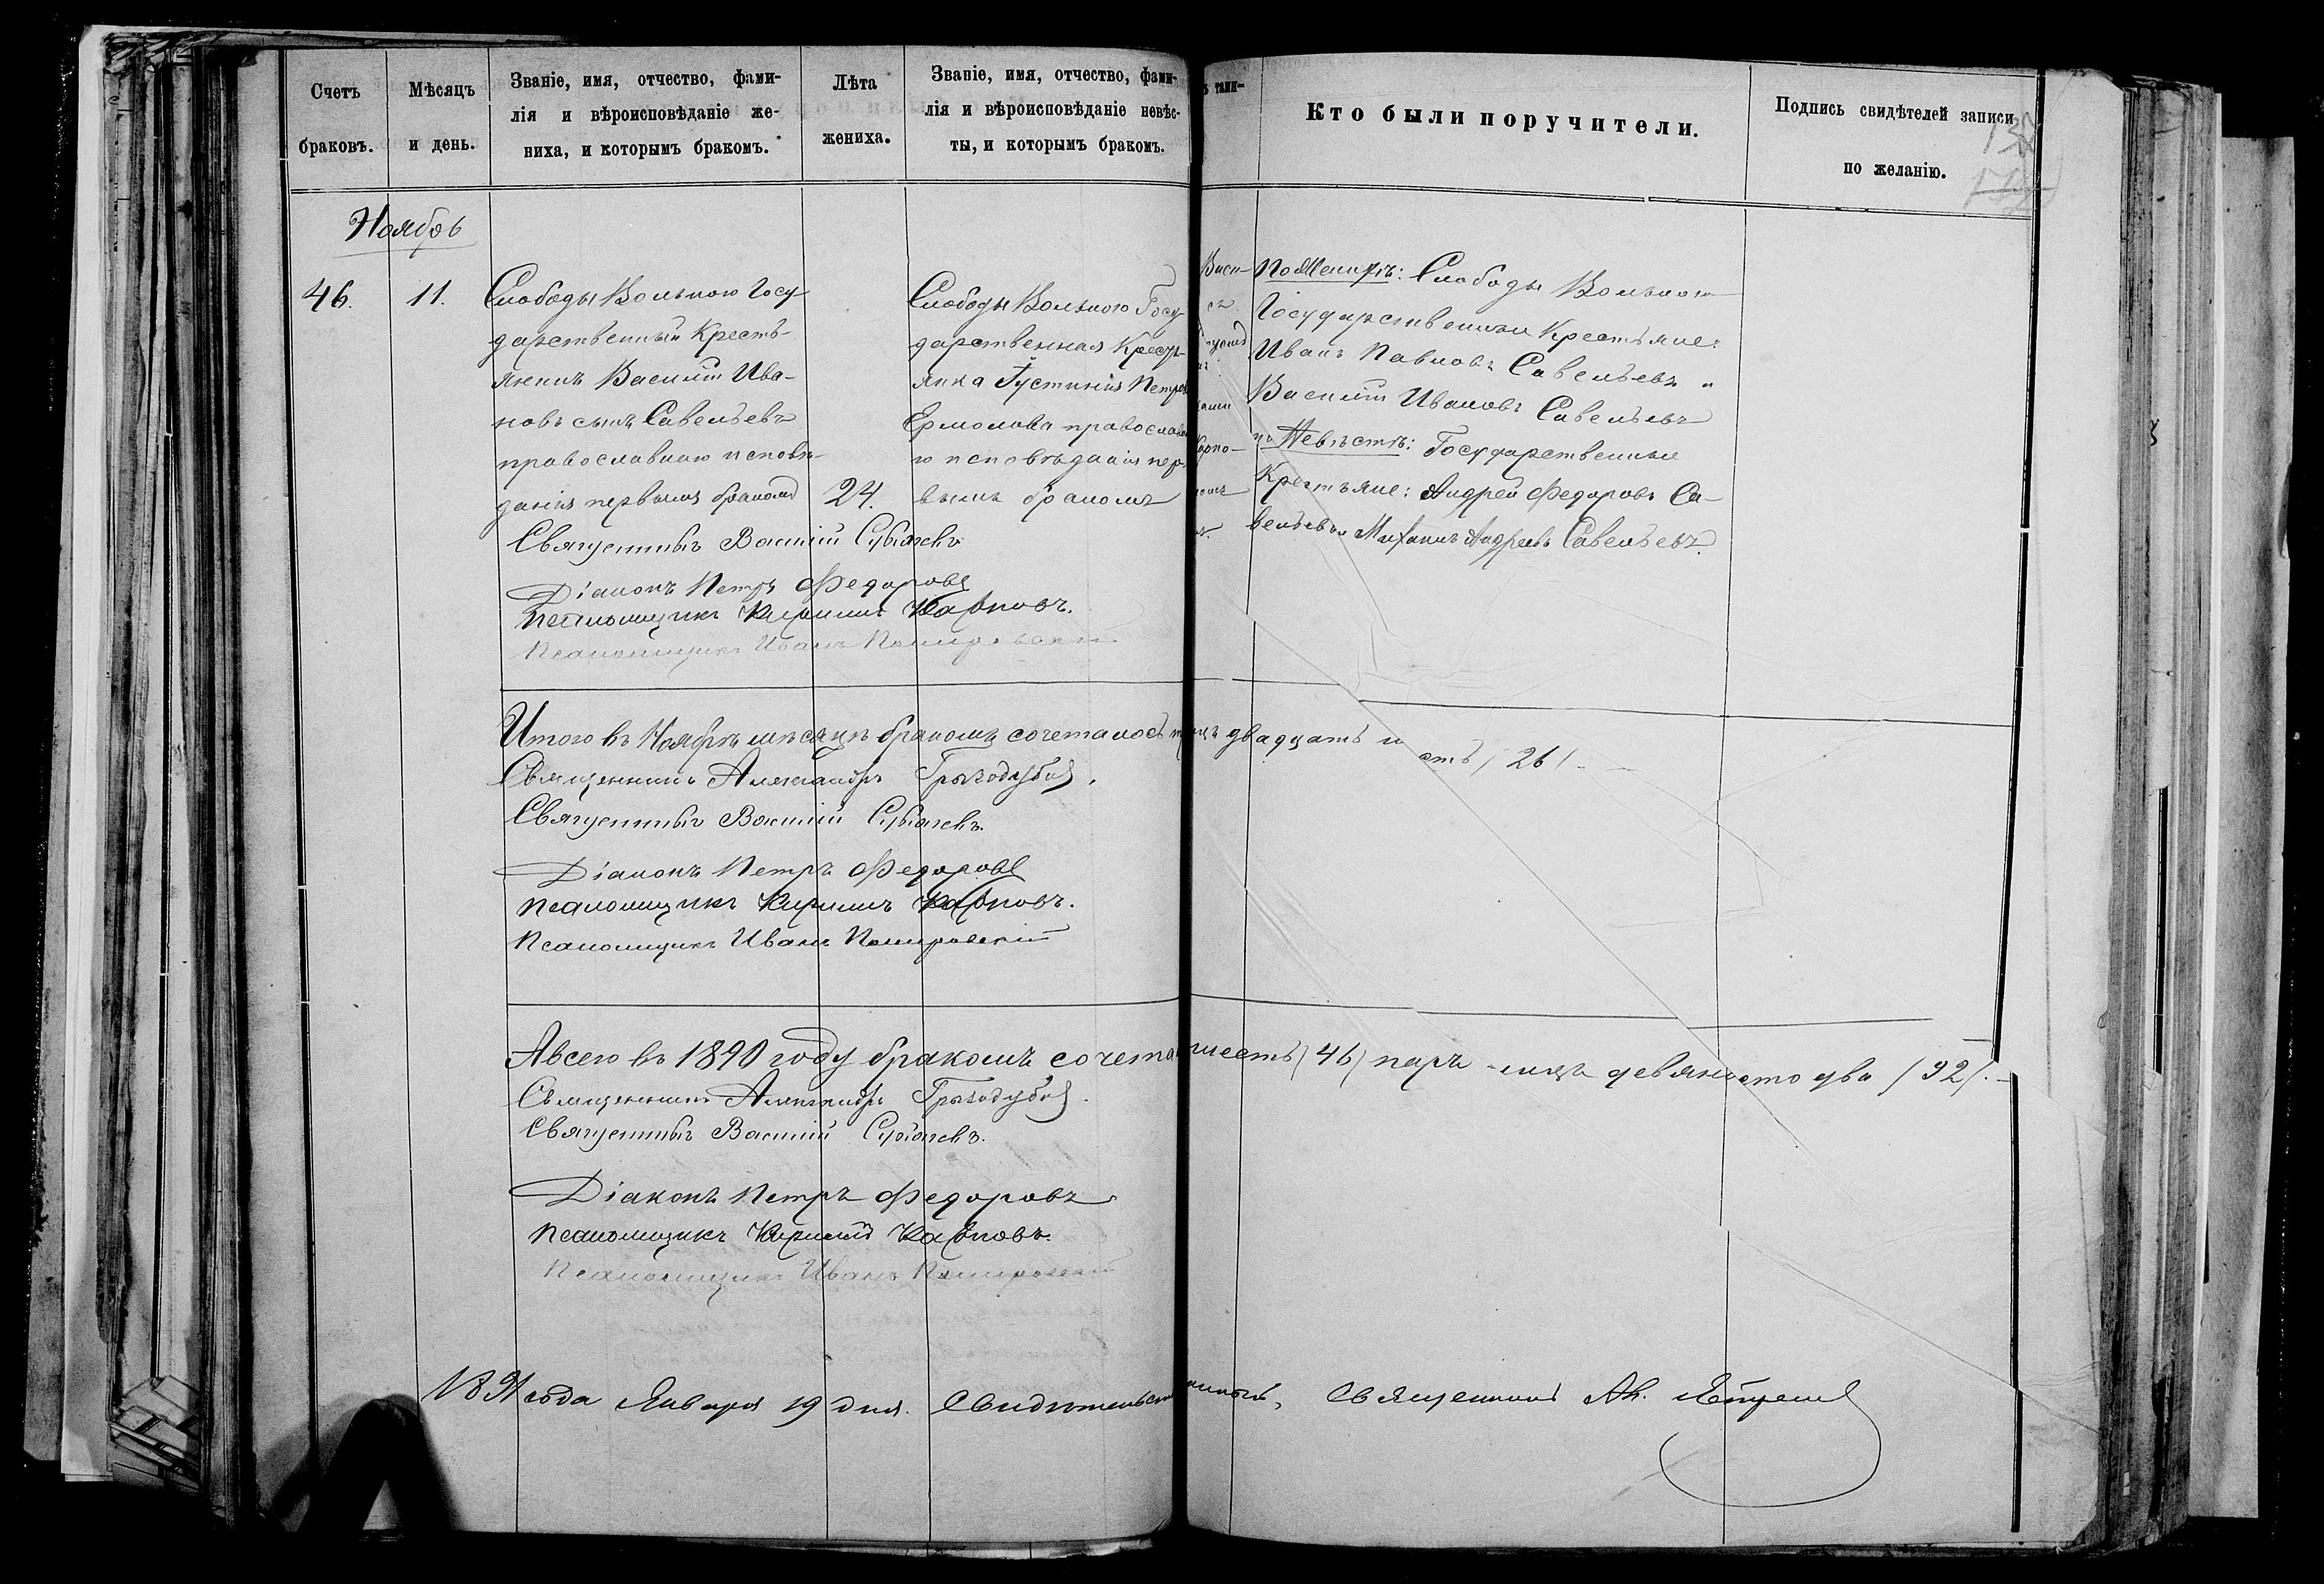 Счетъ браковъ.
Мѣсяцъ и день.
Званіе, имя, отчество, фами-
лія и вѣроисповѣданіе же-
ниха, и которымъ бракомъ.
Лѣта жениха.
Званіе, имя, отчество, фами-
лія и вѣроисповѣданіе невѣс-
ты, и которымъ бракомъ.
Кто были поручители.
Подпись свидѣтелей записи
по желанію.
Ноябрь
46.
11.
Слободы Вольною Госу
дарственный Кресть-
янинъ Василій Ива-
новъ сынъ Савельевъ
православнаго исповѣ-
данія первымъ бракомъ
24.
Слободы Вольною Госу-
дарственная Кресть-
янка Іустинія Петро
Ермолова православ
го исповѣданія пер-
вымъ бракомъ
По Женихѣ: Слободы Вольною
Государственные Крестьяне:
Иванъ Павловъ Савельевъ и
Василій Ивановъ Савельевъ
по Невѣстѣ: Государственные
Крестьяне: Андрей Федоровъ Са-
вельевъ и Михаилъ Андреевъ Савельевъ.
Священникъ Василій
Діаконъ Петръ Федоровъ
Псаломщикъ Кириллъ Карповъ.
Псаломщикъ Иванъ
Итого въ Ноябрѣ мѣсяцѣ бракомъ сочеталось двадцать и
сть (26).
Священникъ Александръ
Священникъ Василій
Діаконъ Петръ Федоровъ
Псаломщикъ Кириллъ Карповъ.
Псаломщикъ Иванъ
А всего въ 1890 году бракомъ сочета шесть (46) паръ лицъ девяносто два (92).
Священникъ Александръ
Священникъ Василій
Діаконъ Петръ Федоровъ
Псаломщикъ Кириллъ Карповъ.
Псаломщикъ Иванъ
1891 года Января 19 дня. Священникъ